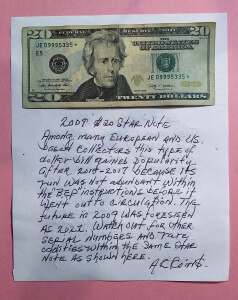 20
20
JE 09995335 *
E5
JE 09995335 *
20
TWENTY DOLLARS
2009 $20 STAR NOTE
Among many European and US.
based collectors this type of
dollar bill gained popularity
after 2015-2017 because its
run was not abundant within
the "BEP" instructions before it
went out to circulation. The
future in 2009 was foreseen
as 2022. Watch out for other
serial numbers and rare
oddities within the same star
note as shown here.